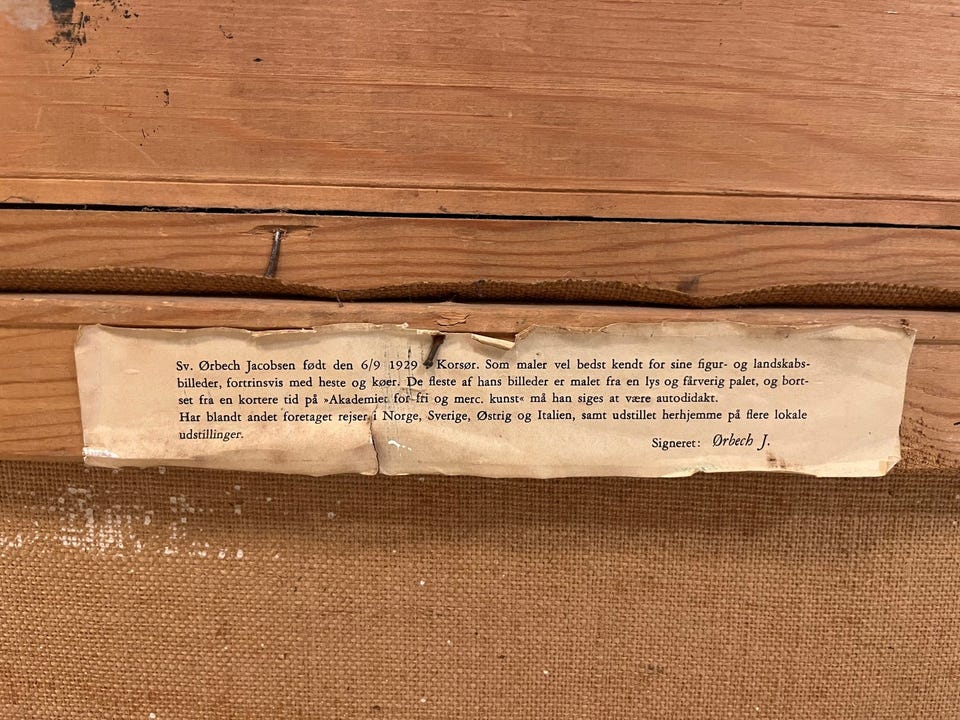 Sv. Ørbech Jacobsen født den 6/9 1929 Korsør. Som maler vel bedst kendt for sine figur- og landskabs-
billeder, fortrinsvis med heste og køer. De fleste af hans billeder er malet fra en lys og fårverig palet, og bort-
set fra en kortere tid på »Akademiet for fri og merc. kunst« må han siges at være autodidakt.
Har blandt andet foretaget rejser i Norge, Sverige, Østrig og Italien, samt udstillet herhjemme på flere lokale
udstillinger.
Signeret: Ørbech J.